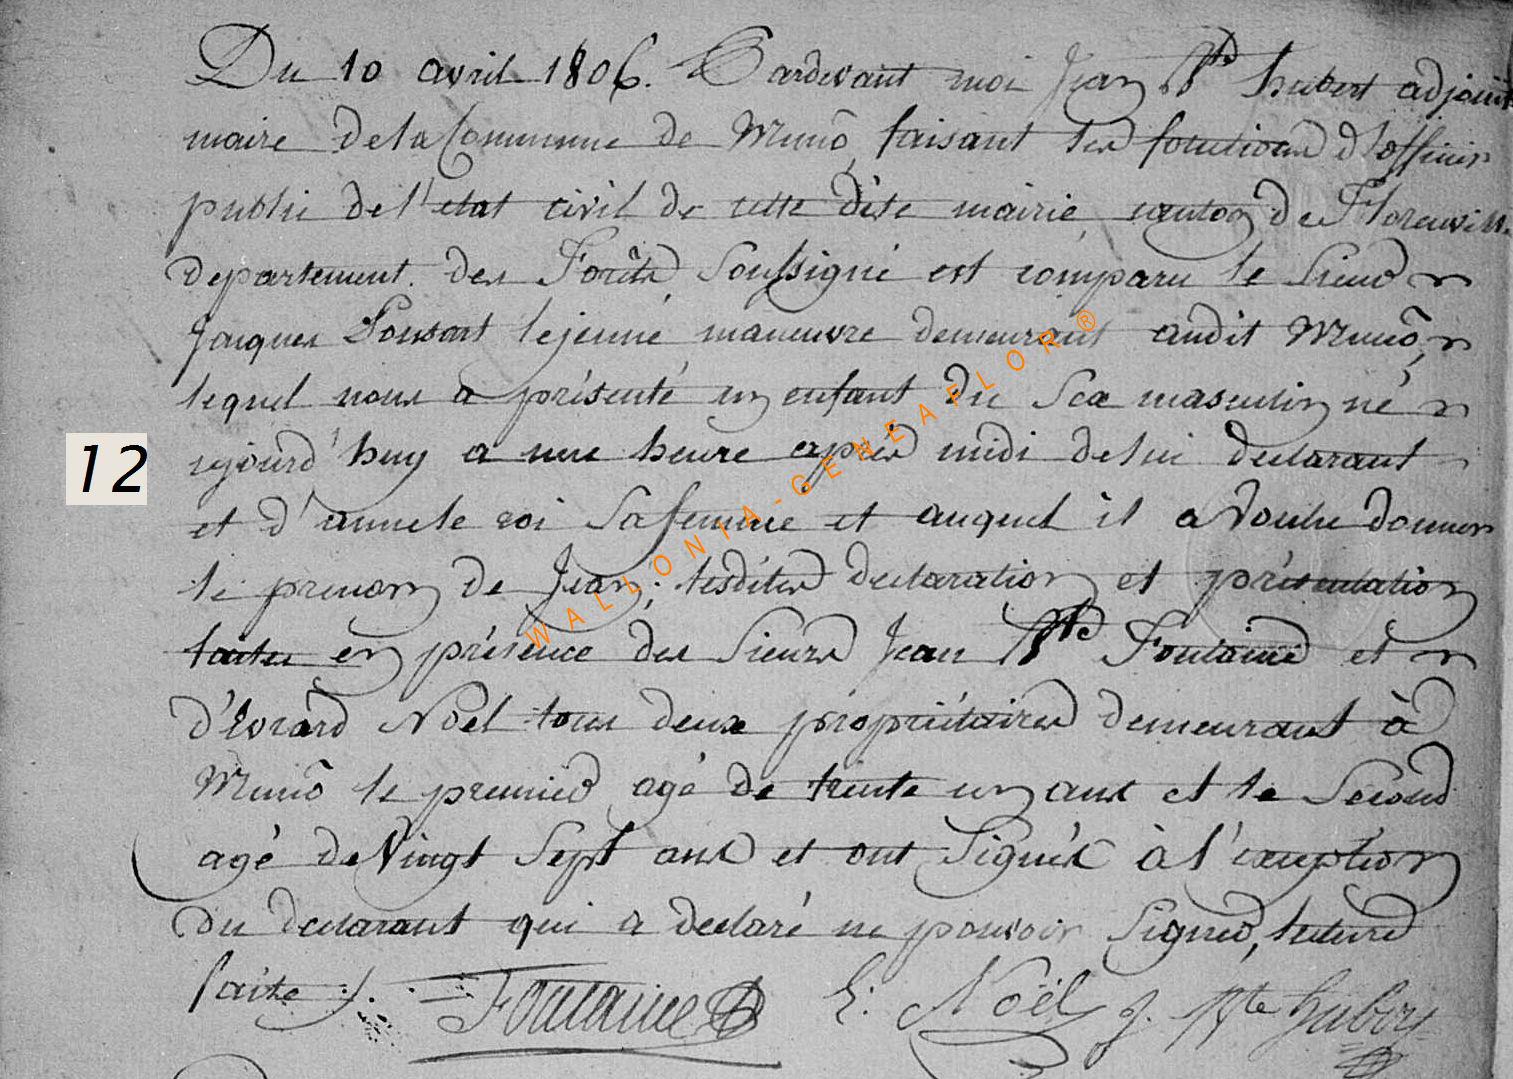 Du 10 avril 1806. Pardevant moi Jean Bte hubert adjoint
maire de la Commune de Muno, faisant les fonctions d'officier
public de l'etat civil de cette dite mairie, canton de Florenville
departement des Forêts soussigné est comparu le Sieur
Jacques Ponsart lejeune maneuvre demeurant audit Muno,
lequel nous a présenté un enfant du Sexe masculin né
12
ajourd'huy a une heure après midi de lui declarant
et d'annele roi Sa femme et auquel il a Voulu donner
le prenom de Jean; lesdites declaration et présentation
faites en présence des Sieurs Jean Bte Fontaine et
d'Evrard Noël tous deux propriétaires demeurant à
Muno le premier agé de trente un ans et le Second
agé de Vingt Sept ans et ont Signés à l'exception
du declarant qui a declaré ne pouvoir Signer, lecture
faite ./.
Fontaine E: Noël J. Bte Hubert
WALLONIA-GENEAFLOR®